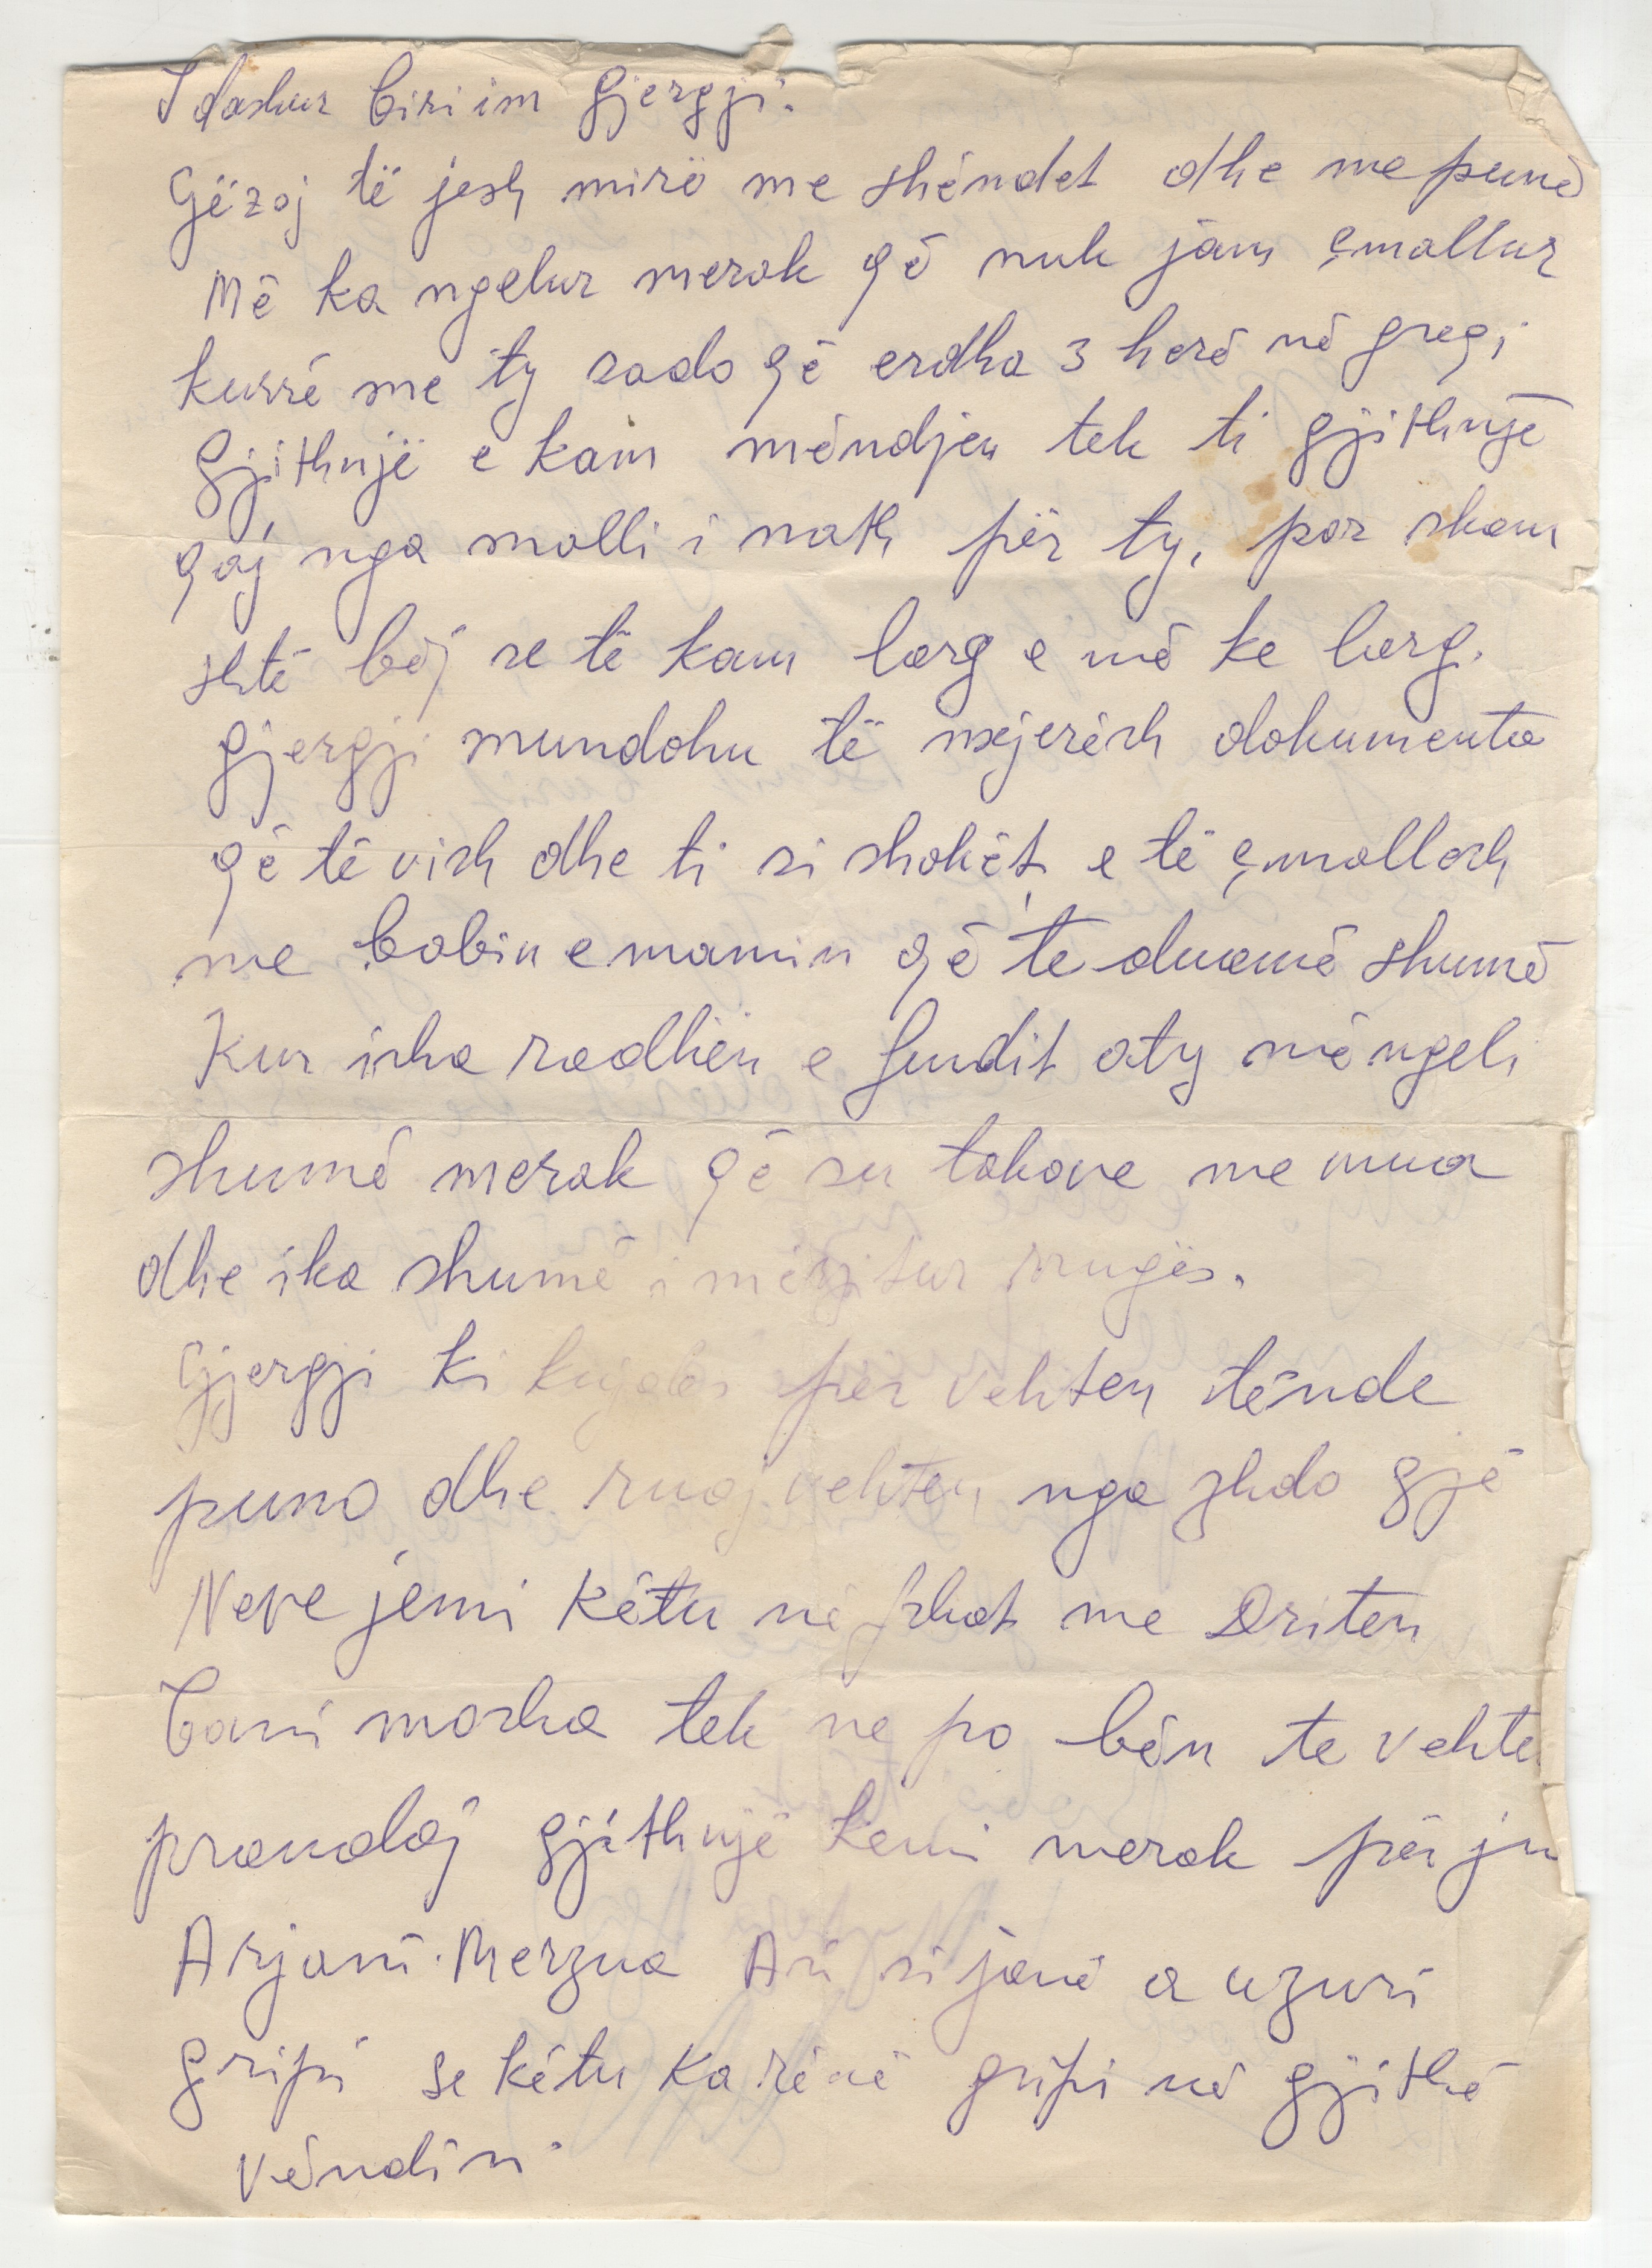 I dashur biri im Gjergji.
Gëzoj të jesh mirë me shëndet dhe me punë
Më ka ngelur merak që nuk jam çmallur
kurrë me ty sado që erdha 3 herë në greqi
Gjithnjë e kam mëndjen tek ti gjithnjë
qaj nga malli i math për ty, por skam
shtë bëj se të kam larg e më ke larg.
Gjergji mundohu të nxjerësh dokumenta
që të vish dhe ti si shokët e të çmallesh
me babin e mamin që te duamë shumë
Kur isha radhën e fundit aty më ngeli
shumë merak që su takove me mua
dhe ika shumë i mërzitur rrugës.
Gjergji ki kujdes për vehten tënde
puno dhe ruaj vehten nga zhdo gjë
Neve jemi këtu në fshat me Driten
tek ne po bën te vehte
prandaj gjithnjë kemi merak për ju
Arjani. Merzua Ari si janë a u zuri
gripi se këtu ka rënë gripi në gjithë
vëndin.